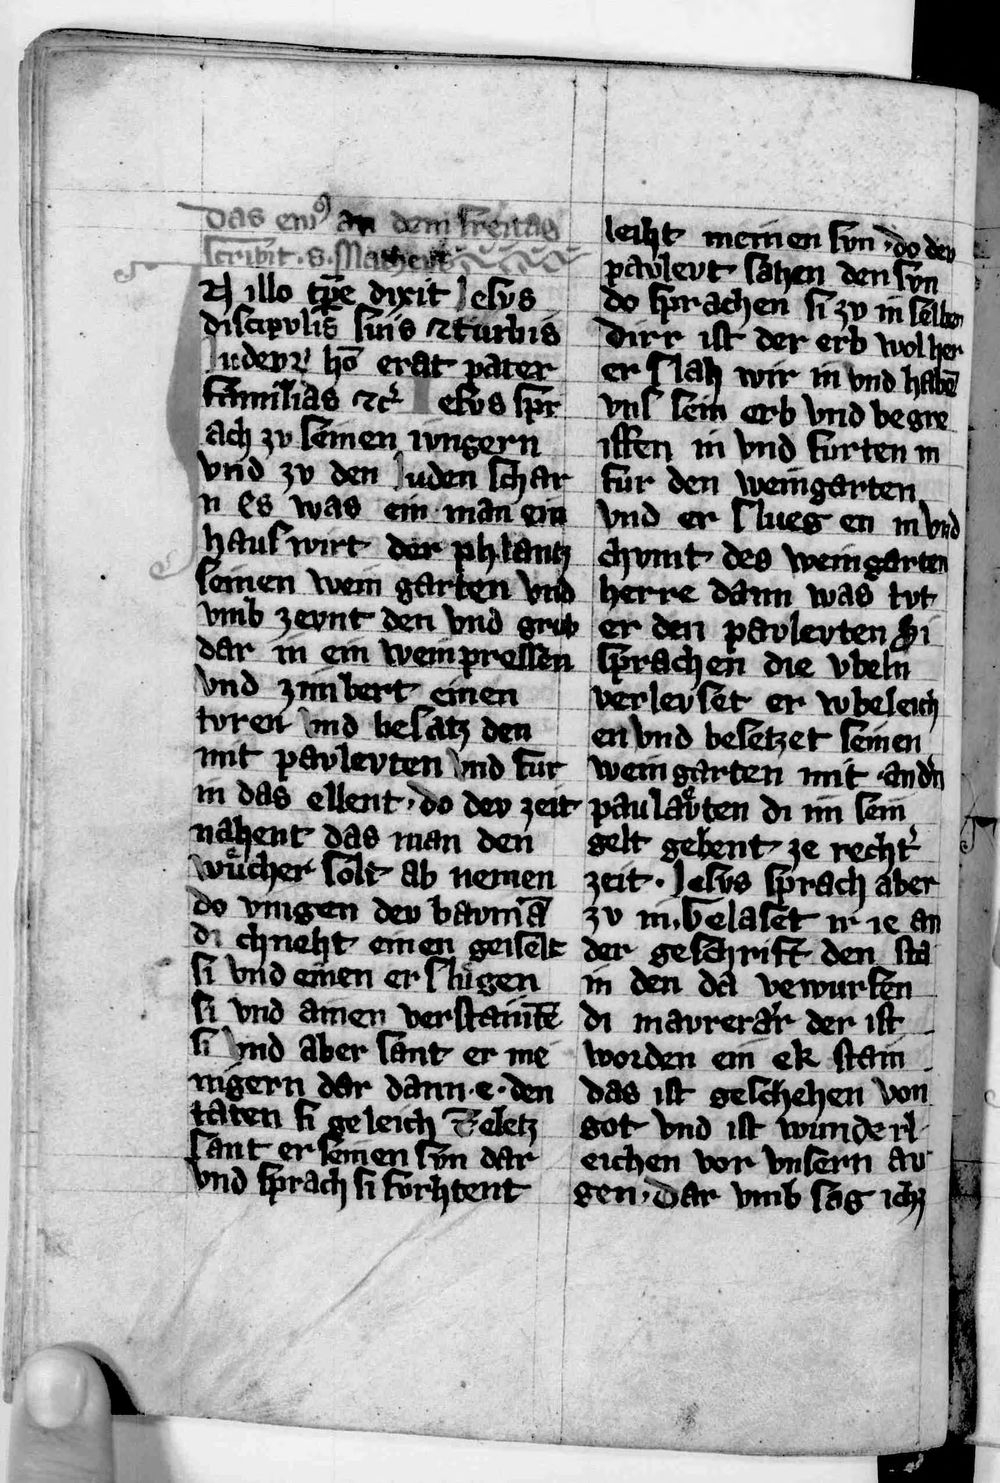 Das ew᷒ an dem freitag
scribit · S · Matheus
N illo tp̄e dixit Jesvs
discipvlis suis ⁊ turbis
Judeoꝝ ho᷒ erat pater
familias ⁊c̾ Jesvs spr
ach zv seinen ivngern
vnd zv den Juden schar
n Es was ein man ein
hauswirt der phlantz
seinen wein garten vnd
vmb zevnt den vnd grub
dar in ein weinpressen
vnd zimbert einen
tvren vnd besatz den
mit pavlevten vnd fur
in das ellent · do dev zeit
nahent das man den
wůcher solt ab nemen
do vingen dev bavmā
di chneht einen geiselt
si vnd einen erslůgen
si vnd ainen verstaintē
si vnd aber sant er me
nigern dar dann · e · den
taten si geleich Zeletz
sant er seinen svn dar
vnd sprach si fvrhtent
leiht meinen svn · do dev
pavlevt sahen den svn
do sprachen si zv in selben
Dirr ist der erb wol her
er slah wir in vnd habē
vns sein erb vnd begre
iffen in vnd furten in
fur den weingarten
vnd er slueg en in vnd
chvmt des weingarten
herre dann was tvt
er den pavlevten Si
sprachen die vbeln
verlevset er vvbeleich
en vnd besetzet seinen
weingarten mit andn̄
paulaͤvten di im sein
gelt gebent ze recht̾
zeit · Jesvs sprach aber
zv in · Gelaset ir ie an
der geschrift den sta
in den da vewurfen
di mavreraͤr der ist
worden ein ek stain
das ist geschehen von
got vnd ist wunderl
eichen vor vnsern av
gen · Dar vmb sag ichz